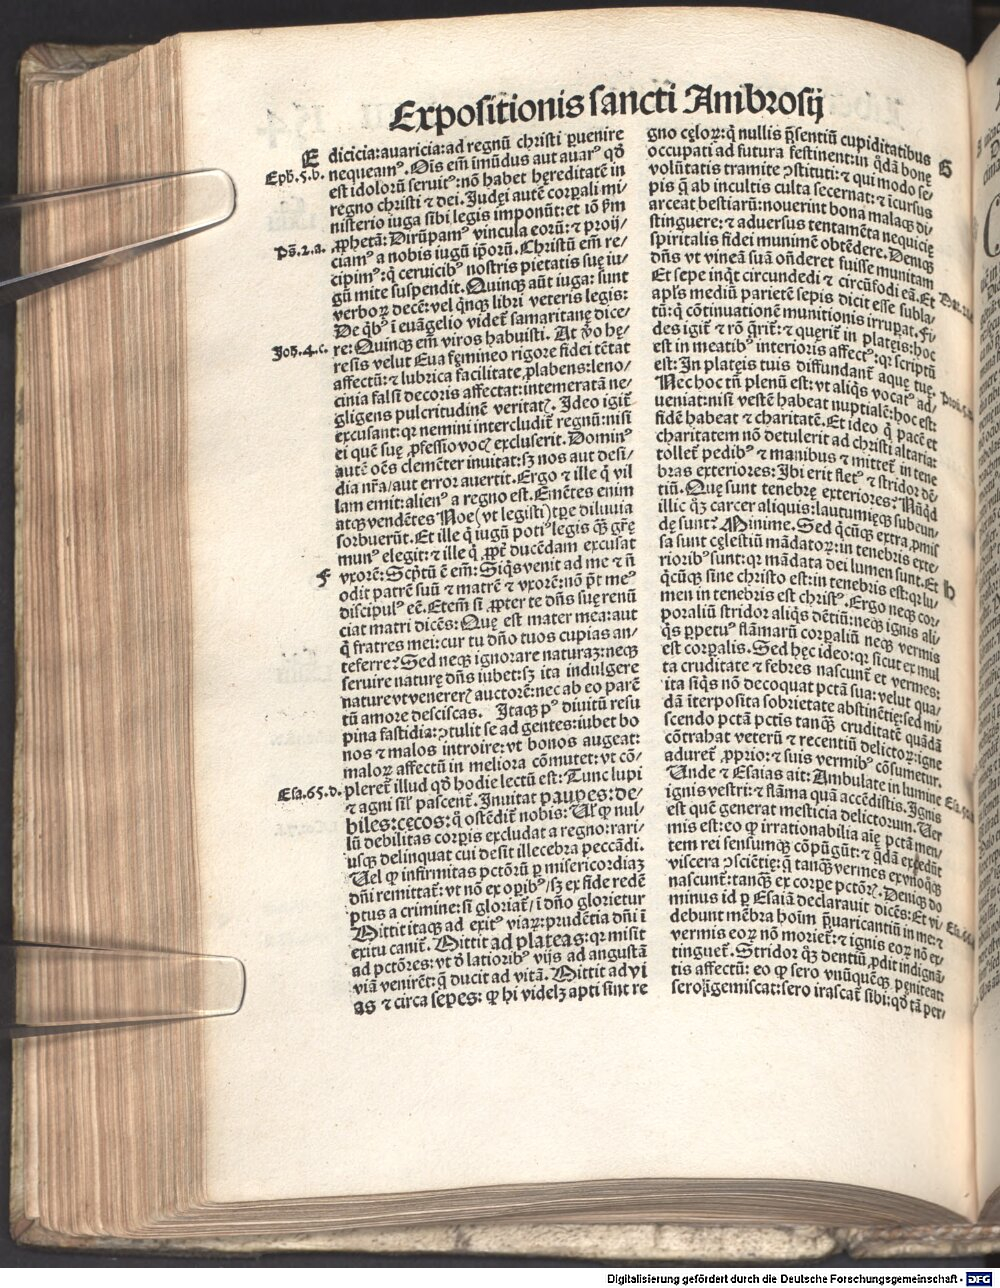 Expositionis sancti Ambrosij
E
dicicia: auaricia: ad regnū christi ꝑuenire
Eph. 5. b.
nequeamꝰ. Oīs em̄ imūdus aut auarꝰ qḋ
est idolorū seruitꝰ: nō habet hereditatē in
regno christi ⁊ dei. Iudęi autē corꝑali mi
nisterio iuga sibi legis imponūt: et iō ꝑm̄
Ps̄. 2. a.
ꝓphetā: Dirūpamꝰ vincula eorū: ⁊ proij/
ciamꝰ a nobis iugū ip̄orū. Christū em̄ re/
cipimꝰ: q̇ ceruicibꝰ nostris pietatis suę iu/
gū mite suspendit. Quinqꝫ aūt iuga: sunt
verboꝝ decē: vel q̇nqꝫ libri veteris legis:
De q̇bꝰ ī euāgelio videt᷑ samaritanę dice/
Ioh. 4. c.
re: Quinqꝫ em̄ viros habuisti. At ṽo hę/
resis velut Eua fęmineo rigore fidei tētat
affectū: ⁊ lubrica facilitate ꝓlabens: leno/
cinia falsi decoris affectat: intemeratā ne/
gligens pulcritudinē veritatꝭ. Ideo igit᷑
excusant: qꝛ nemini intercludit᷑ regnū: nisi
ei quē suę ꝓfessio vocꝭ excluserit. Dominꝰ
autē oēs clemēter inuitat: sꝫ nos aut desi/
dia nr̄a/ aut error auertit. Ergo ⁊ ille q̇ vil
lam emit: alienꝰ a regno est. Emētes enim
atqꝫ vendētes Noe (vt legisti) tꝑe diluuia
sorbuerūt. Et ille q̇ iugū potiꝰ legis qͣꝫ gr̄ę
munꝰ elegit: ⁊ ille q̇ ꝓpt᷑ ducēdam excusat
F
vxorē: Scp̄tū ē em̄: Siq̇s venit ad me ⁊ nō
odit patrē suū ⁊ matrē ⁊ vxorē: nō p̄t meꝰ
discipulꝰ eē. Etem̄ si ꝓpter te dn̄s suę renū
ciat matri dicēs: Quę est mater mea: aut
q̇ fratres mei: cur tu dn̄o tuos cupias an/
teferre? Sed neqꝫ ignorare naturaꝫ: neqꝫ
seruire naturę dn̄s iubet: sꝫ ita indulgere
nature vt venererꝭ auctorē: nec ab eo parē
tū amore desciscas. Itaqꝫ pꝰ diuitū resu
pina fastidia: ꝯtulit se ad gentes: iubet bo
nos ⁊ malos introire: vt bonos augeat:
maloꝝ affectū in meliora cōmutet: vt cō/
Esa. 65. d.
pleret᷑ illud qḋ hodie lectū est: Tunc lupi
⁊ agni sil̄ pascent᷑. Inuitat pauꝑes: de/
biles: cęcos: q̇ ostēdit᷑ nobis: Ul̓ ꝙ nul/
lū debilitas corꝑis excludat a regno: rari/
usqꝫ delinquat cui desit illecebra peccādi.
Uel ꝙ infirmitas pctōrū ꝑ misericordiaꝫ
dn̄i remittat᷑: vt nō ex oꝑibꝰ/ sꝫ ex fide redē
ptus a crimine: si gloriat᷑/ ī dn̄o glorietur
Mittit itaqꝫ ad exitꝰ viaꝝ: prudētia dn̄i ī
exitu canit᷑. Mittit ad plateas: qꝛ misit
ad pctōres: vt ḋ latioribꝰ vijs ad angustā
viā venirēt: q̄ ducit ad vitā. Mittit ad vi
as ⁊ circa sepes: ꝙ hi videlꝫ apti sint re
gno cęloꝝ: q̇ nullis p̄sentiū cupiditatibus
G
occupati ad futura festinent: in q̇dā bonę
volūtatis tramite ꝯstituti: ⁊ qui modo se/
pis q̄ ab incultis culta secernat: ⁊ īcursus
arceat bestiarū: nouerint bona malaqꝫ di/
stinguere: ⁊ aduersus tentamēta nequicię
spiritalis fidei munimē obtēdere. Deniqꝫ
dn̄s vt vineā suā on̄deret fuisse munitam
Et sepe inq̇t circundedi ⁊ circūfodi eā. Et
apl̄s mediū parietē sepis dicit esse subla/
tū: q̇ cōtinuationē munitionis irrupat. Fi/
des igit᷑ ⁊ rō q̄rit᷑: ⁊ quęrit᷑ in plateis: hoc
est in meatibꝰ interioris affectꝰ: qꝛ scriptū
est: In plateis tuis diffundant᷑ aquę tuę.
Nec hoc tn̄ plenū est: vt aliq̇s vocatꝰ ad/
ueniat: nisi vestē habeat nuptialē: hoc est:
fidē habeat ⁊ charitatē. Et ideo q̇ pacē et
charitatem nō detulerit ad christi altaria:
tollet᷑ pedibꝰ ⁊ manibus ⁊ mittet᷑ in tene
bras exteriores: Ibi erit fletꝰ ⁊ stridor dē
tiū. Quę sunt tenebrę exteriores? Nūq̇d
illic q̇ꝫ carcer aliquis: lautumięqꝫ subeun/
dę sunt? Minime. Sed q̇cūqꝫ extra ꝓmis
sa sunt cęlestiū mādatoꝝ: in tenebris exte/
rioribꝰ sunt: qꝛ mādata dei lumen sunt. Et
H
q̇cūqꝫ sine christo est: in tenebris est: qꝛ lu/
men in tenebris est christꝰ. Ergo neqꝫ cor/
poraliū stridor aliq̇s dētiū: neqꝫ ignis ali/
q̇s ꝑpetuꝰ flāmarū corꝑaliū neqꝫ vermis
est corꝑalis. Sed hęc ideo: qꝛ sicut ex mul
ta cruditate ⁊ febres nascunt᷑ et vermes:
ita siq̇s nō decoquat pctā sua: velut qua/
dā īterposita sobrietate abstinētię: sed mi/
scendo pctā pctis tanqͣꝫ cruditatē quādā
cōtrahat veterū ⁊ recentiū delictoꝝ: igne
aduret᷑ ꝓprio: ⁊ suis vermibꝰ cōsumetur.
Unde ⁊ Esaias ait: Ambulate in lumine
ignis vestri: ⁊ flāma quā accēdistis. Ignis
est quē generat mesticia delictorum. Uer
mis est: eo ꝙ irrationabilia aīę pctā men/
tem rei sensumqꝫ cōpūgūt: ⁊ q̇dā expedūt
viscera ꝯsciētię: q̄ tanqͣꝫ vermes ex vnoq̇qꝫ
nascunt᷑: tanqͣꝫ ex corꝑe pctōrꝭ. Deniqꝫ do
minus id ꝑ Esaiā declarauit dicēs: Et vi/
debunt mēbra hoīm p̄uaricantiū in me: ⁊
vermis eoꝝ nō moriet᷑: ⁊ ignis eoꝝ nō ex/
tinguet᷑. Stridor q̇ꝫ dentiū ꝓdit indignā/
tis affectū: eo ꝙ sero vnūquēqꝫ pęniteat:
sero īgemiscat: sero irascat᷑ sibi: qḋ tā per/
Digitalisierung gefördert durch die Deutsche Forschungsgemeinschaft - DFG